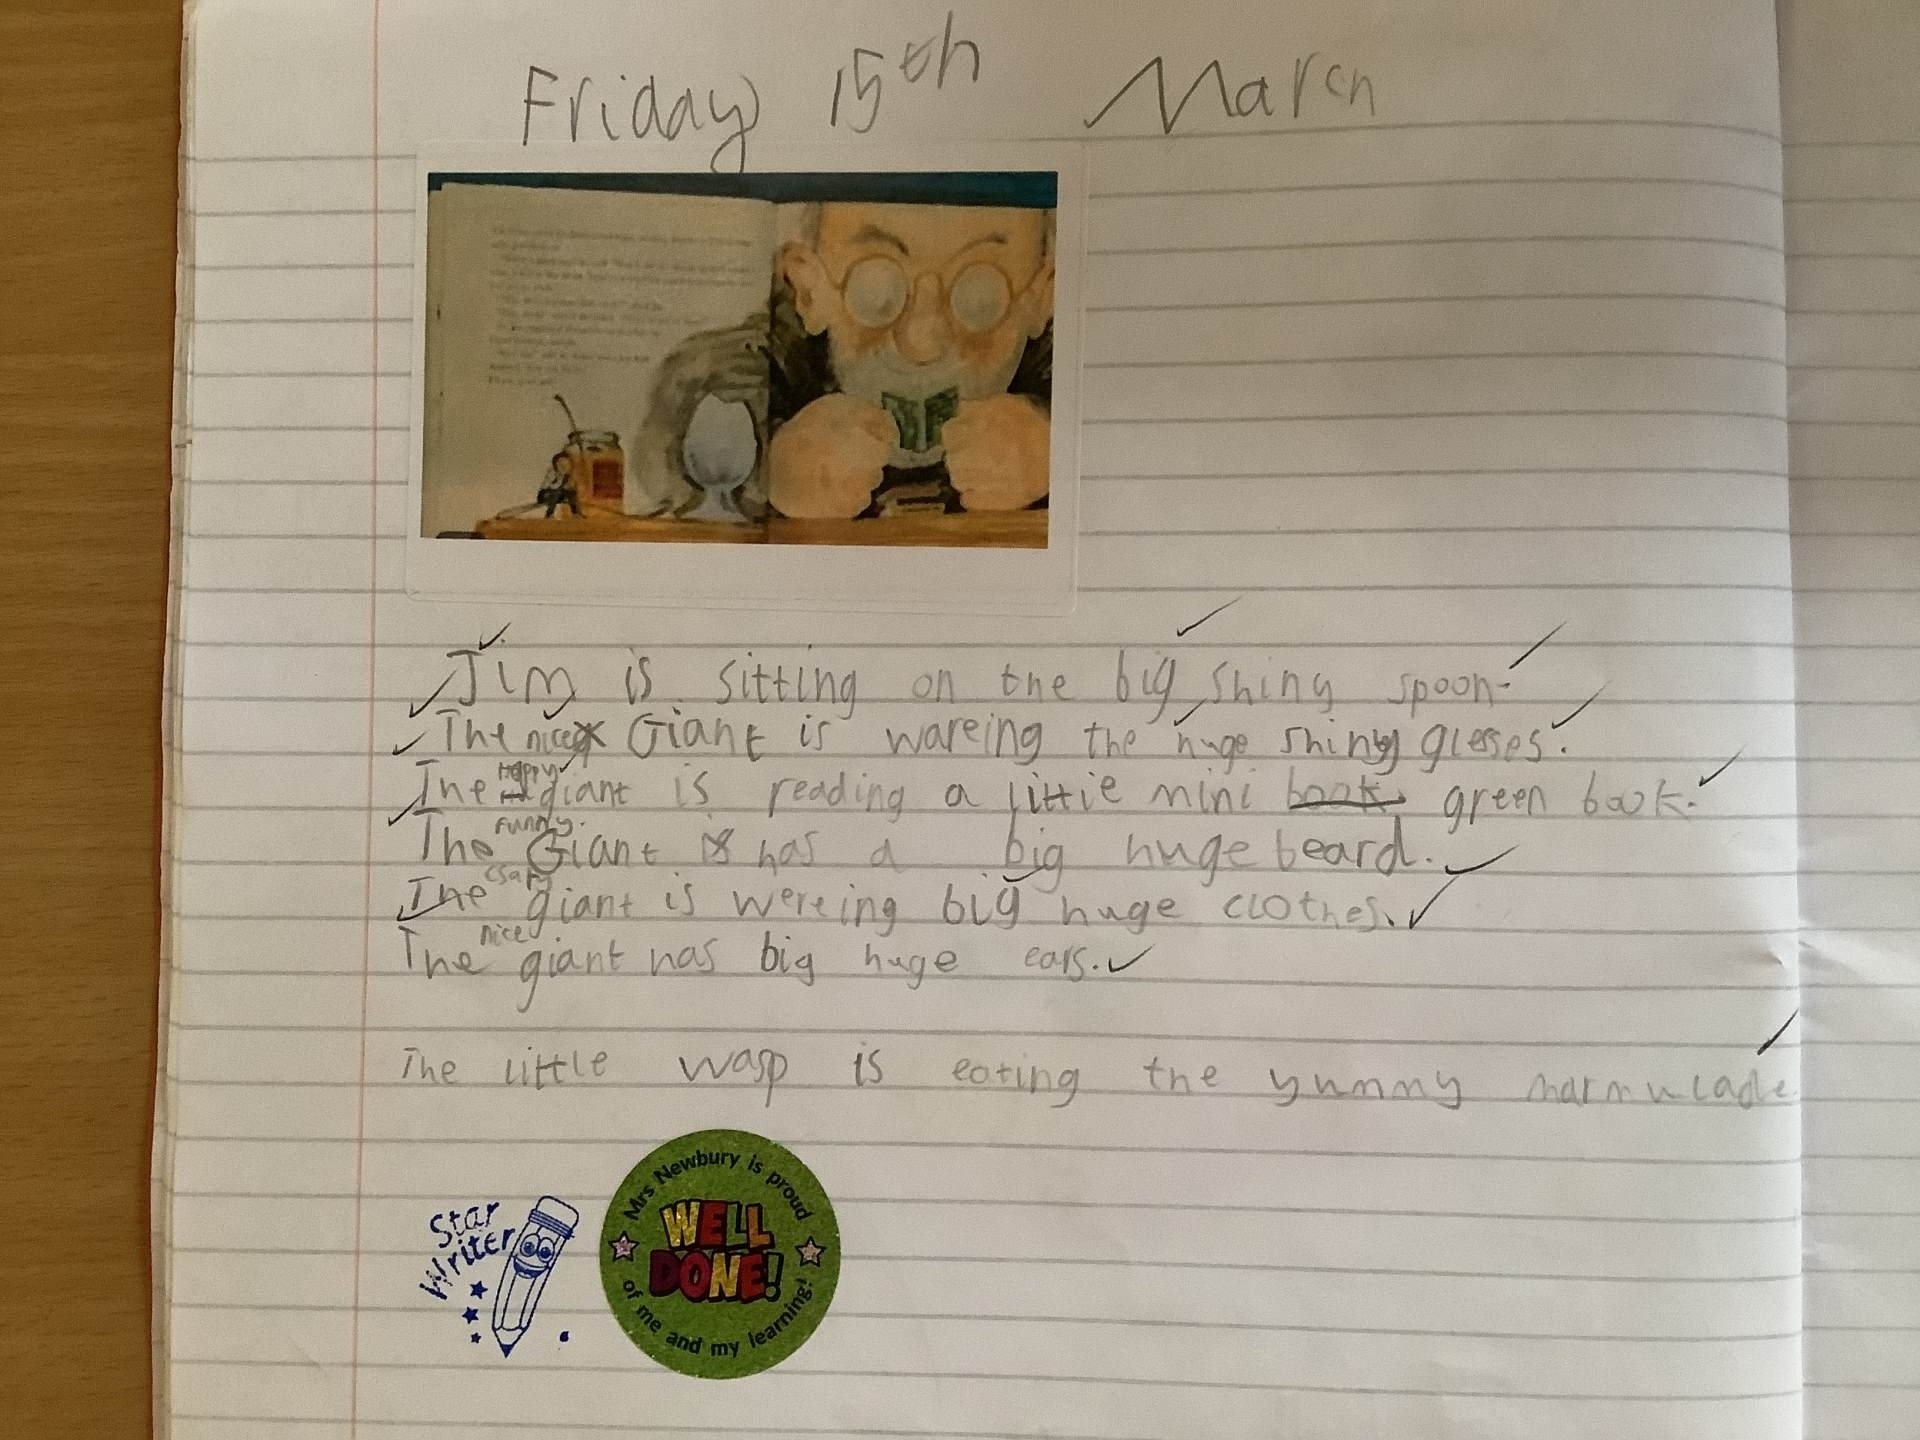 Friday 15th March
Jim is sitting on the big shiny spoon.
The nice Giant is wareing the huge shiny glesses.
The Happy giant is reading a little mini book green book.
The funny Giant is has a big huge beard.
The giant is wereing big huge clothes.
The nice giant has big huge ears.
The little wasp is eating the yummy marmulade.
Star Writer
Mrs Newbury is proud
WELL DONE!
of me and my learning!